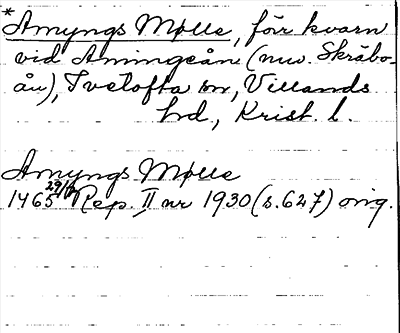 *Amyngs Mølle, för kvarn
vid Amingeån (nuv. Skräbe-
ån), Ivetofta sn, Villands
hd, Krist. l.
Amyngs Mølle
1465 29/ Rep. II nr 1930 (s. 627) orig.